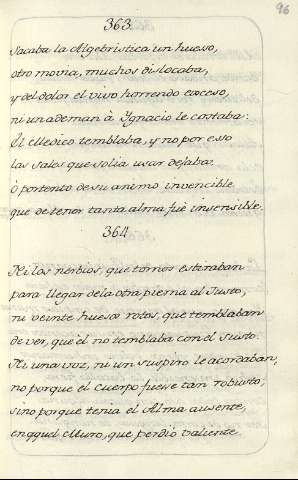 96
363.
Sacaba la Algebristica un hueso,
otro movia, muchos dislocaba,
y del dolor el vivo horrendo exceso,
ni un ademan à Ygnacio le costaba:
El Medico temblaba, y no por esso
las sales que solia usar dejaba:
ò portento de su animo invencible
que de tener tanta alma fuè insensible.
364
Ni los nerbios, que tornos estiraban
para llegar de la otra pierna al Justo,
ni veinte huesos rotos, que temblaban
de ver, que èl no temblaba con el susto.
Ni una voz, ni un suspiro le acordaban,
no porque el Cuerpo fuese tan robusto;
sino porque tenia el Alma ausente,
en aquel Muro, que perdiò valiente.